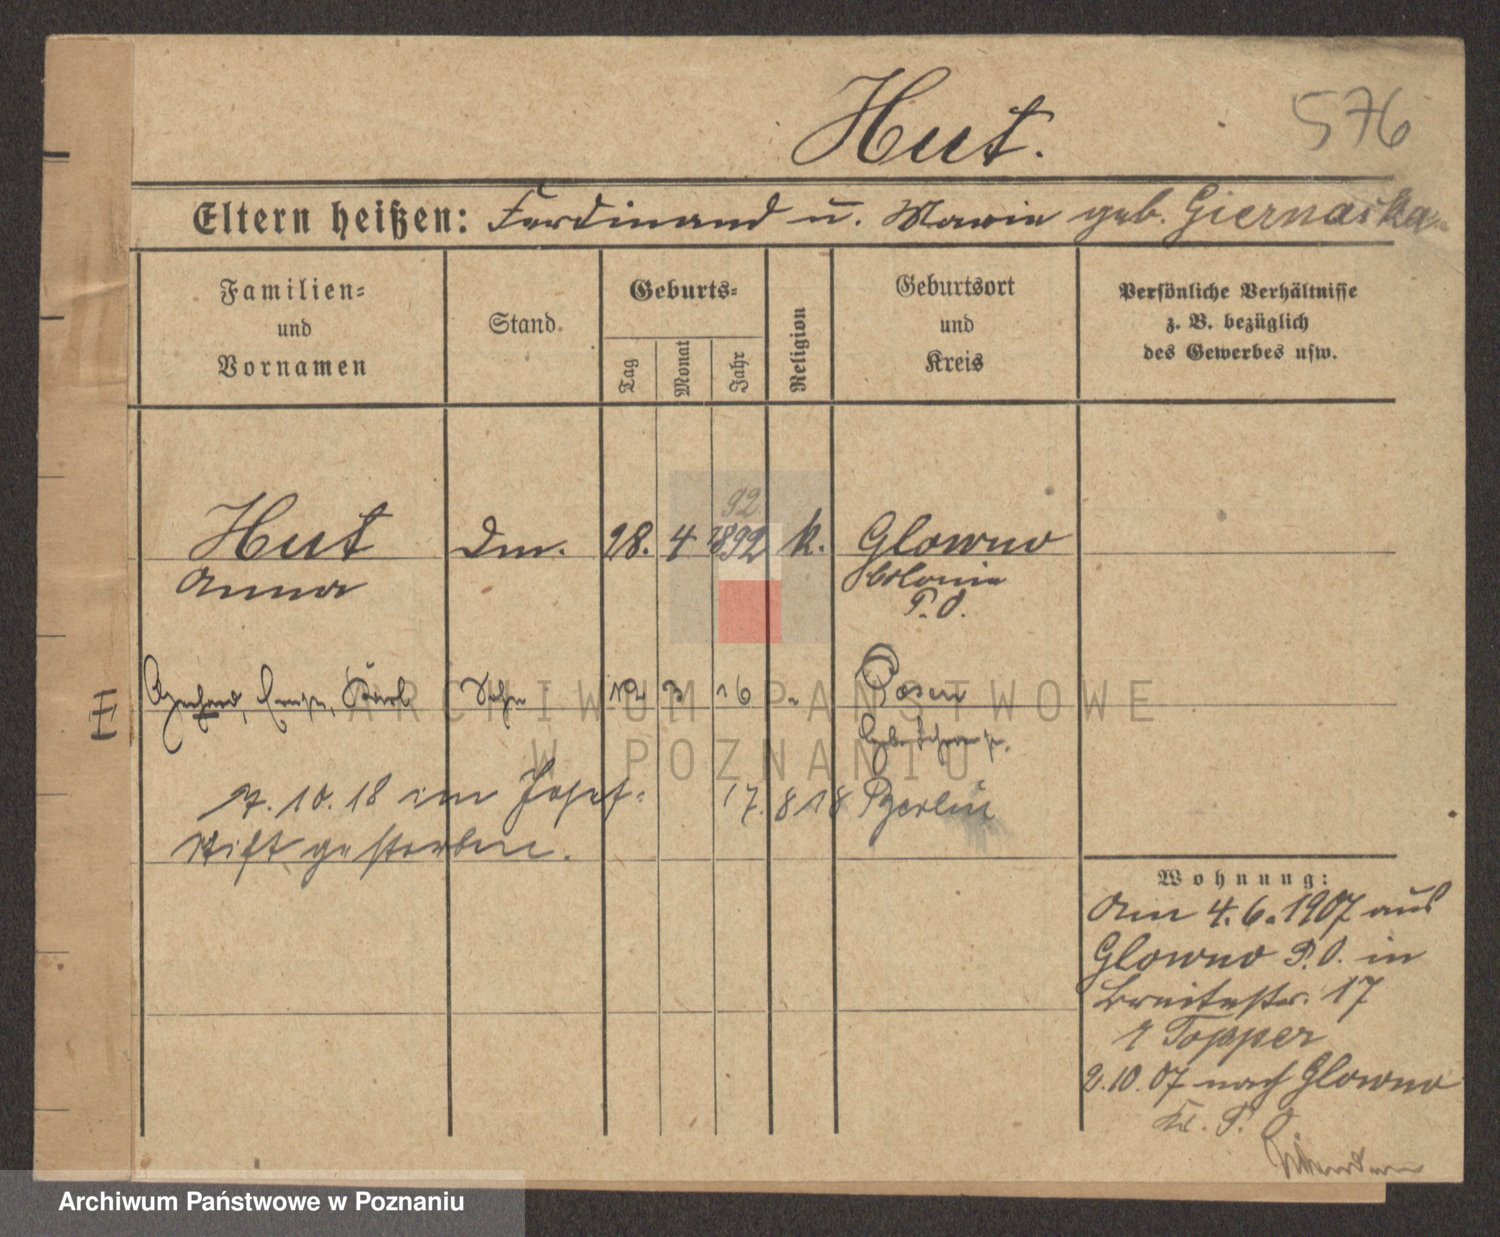 Hut.
576
Eltern heißen: Ferdinand u. Marie geb. Giernaska
Familien= und Vornamen
Stand
Geburts=
Tag
Monat
Jahr
Religion
Geburtsort und Kreis
Persönliche Verhältnisse z. B. bezüglich des Gewerbes usw.
92
Hut
Anna
28. 4 1892 k. Glowno
Colonie
P. O.
II
Gerhard, Ernst, Karl Sohn 12 3 16 " Posen
7. 10. 18 im Josef=
stift gestorben.
17. 8 18 Berlin
Wohnung:
Am 4. 6. 1907 aus
Glowno P. O. in
Breitestr. 17
Topper
2. 10. 07 nach Glowno
Kr. P. O
ARCHIWUM PAŃSTWOWE
W POZNANIU
Archiwum Państwowe w Poznaniu